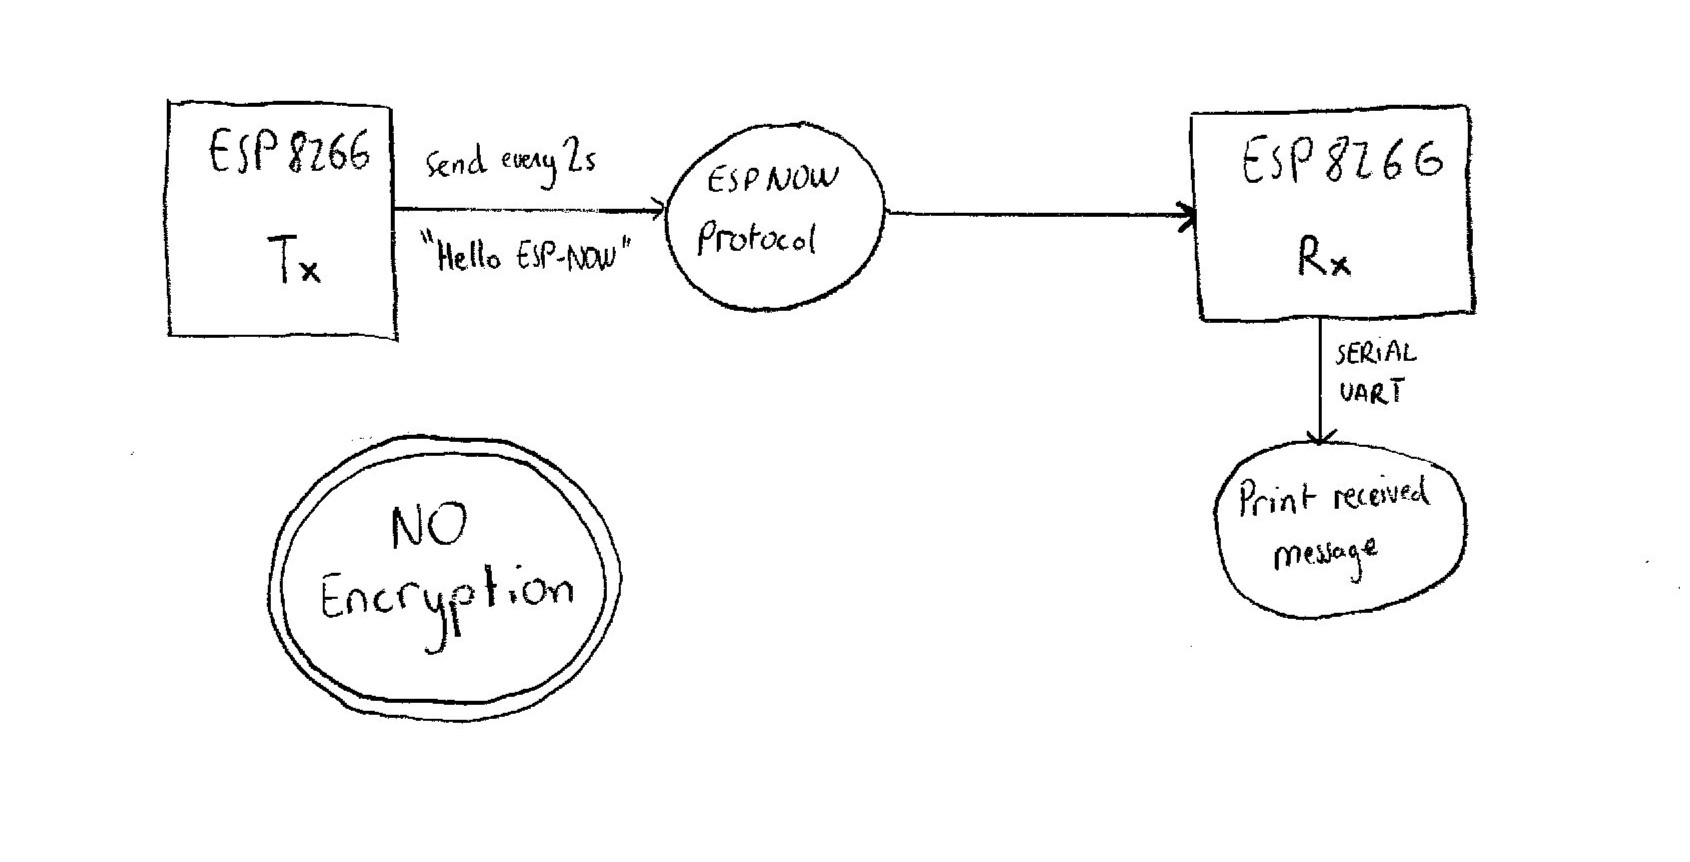 ESP 8266
Tx
send every 2s
"Hello ESP-NOW"
ESP NOW
Protocol
ESP 8266
Rx
SERIAL
UART
Print received
message
NO
Encryption